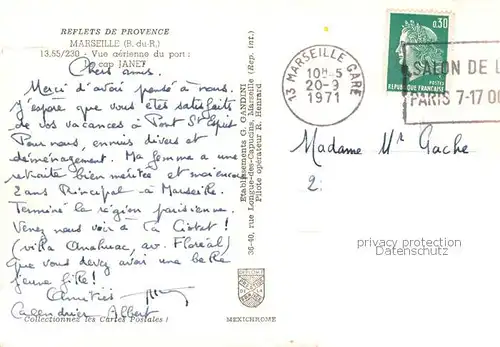 REFLETS DE PROVENCE
MARSEILLE (B.-du-R.)
13.65/230 - Vue aérienne du port :
cap JANET
Chers amis.
Merci d'avoir pensé à nous.
J'espère que vous êtes satisfaits
de vos vacances à Pont St Esprit
Pour nous, ennuis divers et
déménagement. Ma femme a une
retraite bien méritée et moi encore
2 ans Principal à Marseille.
Terminé la région parisienne.
Venez nous voir à La Ciotat !
(villa Anahuac, av. Floréal)
Que vous devez avoir une belle
jeune fille !
Amitiés
Calendrier Albert
Collectionnez les Cartes Postales !
Etablissements G. GANDINI
36-40, rue Longue-des-Capucins, Marseille (Rep. int.)
Pilote opérateur R. Henrard
MEXICHROME
13 MARSEILLE GARE
10H-5
20-9
1971
0,30
POSTES
REPUBLIQUE FRANÇAISE
SALON DE L
PARIS 7-17 OC
Madame Mr Gache
2.
privacy protection
Datenschutz